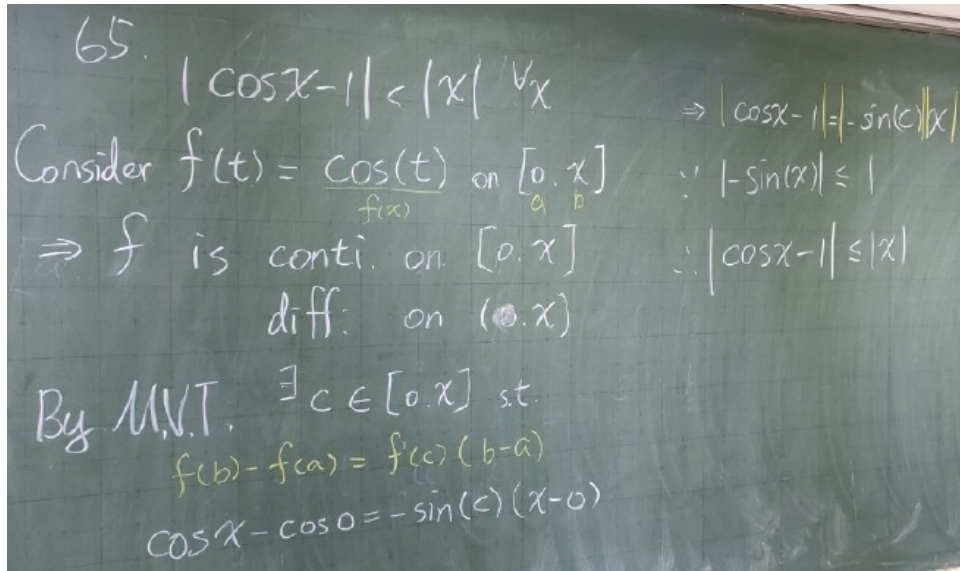 65.
|cosx-1| < |x| ∀x
Consider f(t) = cos(t) on [0.x]
f(x) a b
⇒ f is conti. on [0.x]
diff. on (0.x)
By M.V.T. ∃ c ∈ [0.x] s.t.
f(b)-f(a) = f'(c)(b-a)
cosx-cos0 = -sin(c)(x-0)
⇒ |cosx-1| = |-sin(c)||x|
∵ |-sin(x)| ≤ 1
∴ |cosx-1| ≤ |x|